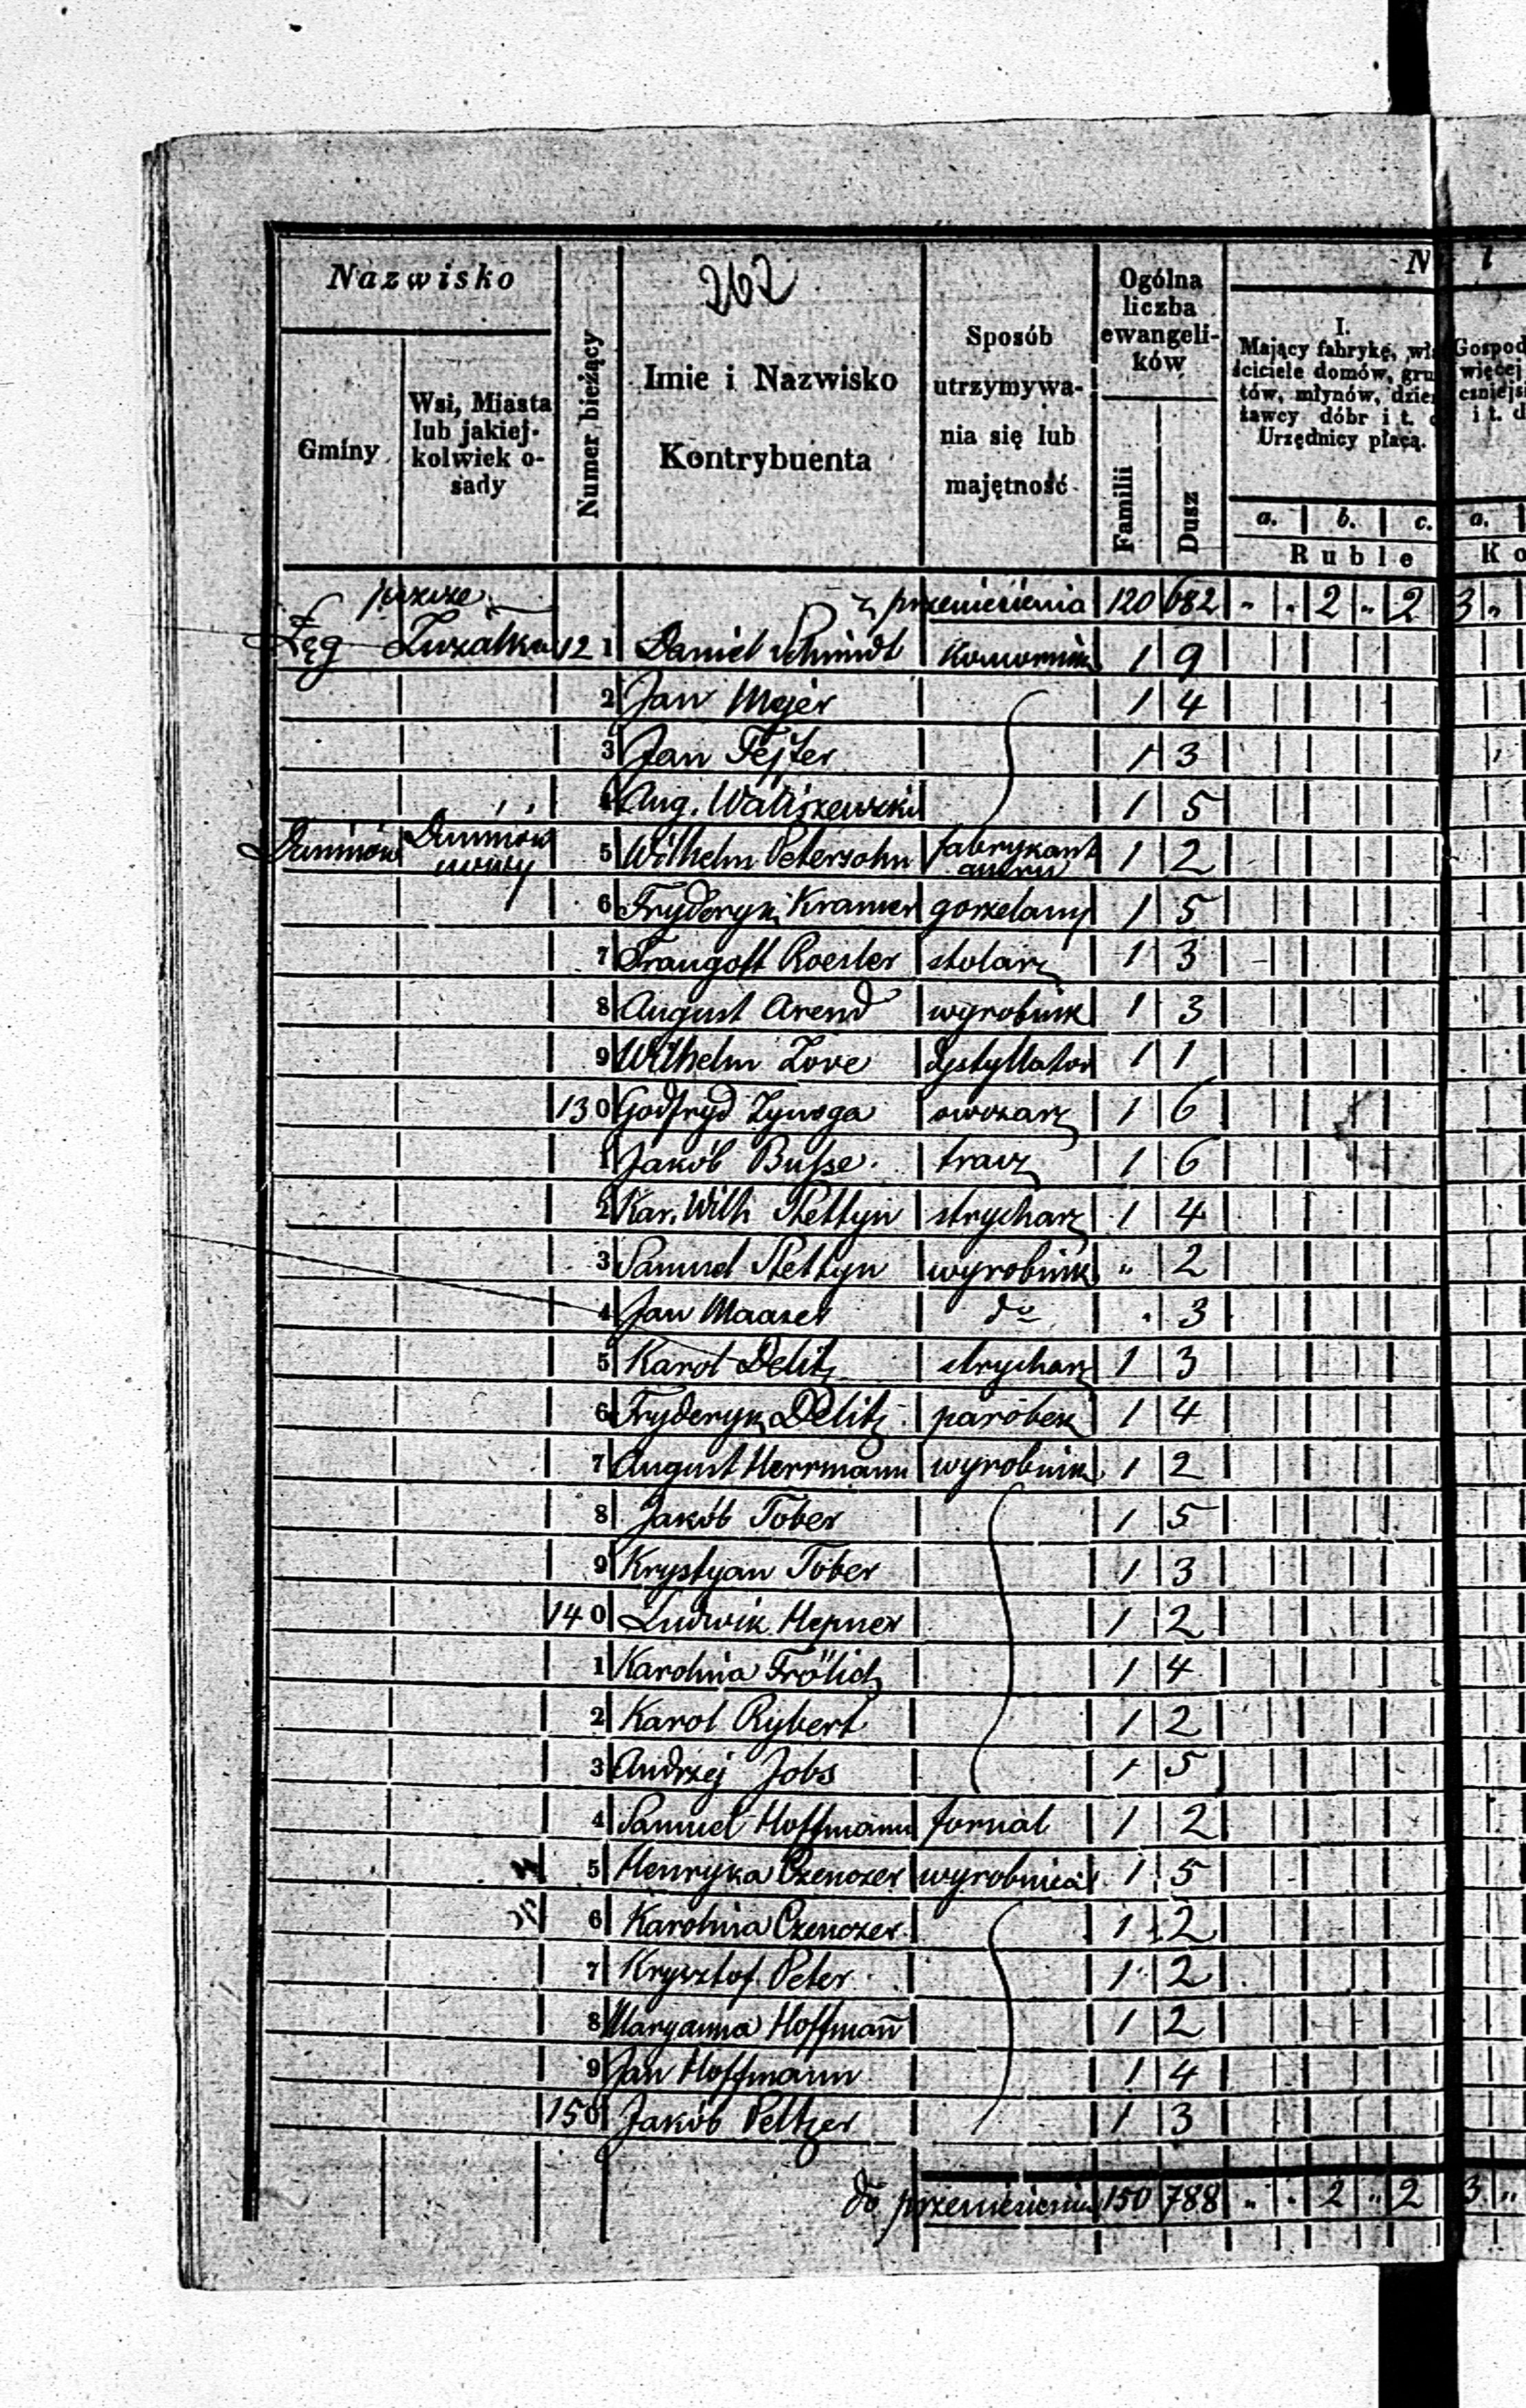 Nazwisko
Gminy
Wsi, Miasta
lub jakiej-
kolwiek o-
sady
Numer bieżący
262
Imie i Nazwisko
Kontrybuenta
Sposób
utrzymywa-
nia się lub
majętność
Ogólna
liczba
ewangeli-
ków
Familii
Dusz
N i
I.
Mający fabrykę, wła
ściciele domów, gru
tów, młynów, dzier
ławcy dóbr i t. d
Urzędnicy płacą.
a. b. c.
Ruble
Gospod
więcej
czniejsi
i t. d
a.
Ko
z przeniesienia 120 682 " . 2 " 2 3 "
Łęg 121 Daniel Schmidt komornik 1 9
2 Jan Mejer 1 4
3 Jan Fejter 1 3
4 Aug. Waliszewski 1 5
Duninów Duninów nowy 5 Wilhelm Petersohn fabrykant cukru 1 2
6 Fryderyk Kramer gorzelany 1 5
7 Traugott Roesler stolarz 1 3
8 August Arend wyrobnik 1 3
9 Wilhelm Löve dystyllator 1 1
130 Godfryd Zynoga owczarz 1 6
1 Jakób Busse. tracz 1 6
2 Kar. Wilh Stettyn strycharz 1 4
3 Samuel Stettyn wyrobnik " 2
4 Jan Maaser do . 3
5 Karol Delitz strycharz 1 3
6 Fryderyk Delitz parobek 1 4
7 August Herrmann wyrobnik 1 2
8 Jakób Tober 1 5
9 Krystyan Tober 1 3
140 Ludwik Hepner 1 2
1 Karolina Frölich 1 4
2 Karol Rybert 1 2
3 Andrzej Jobs 1 5
4 Samuel Hoffmann fornal 1 2
5 Henryka Czenczer wyrobnica 1 5
6 Karolina Czenczer 1 2
7 Krysztof Peter 1 2
8 Maryanna Hoffmañ 1 2
9 Jan Hoffmann 1 4
150 Jakób Peltzer 1 3
do przeniesienia 150 788 " . 2 " 2 3 "